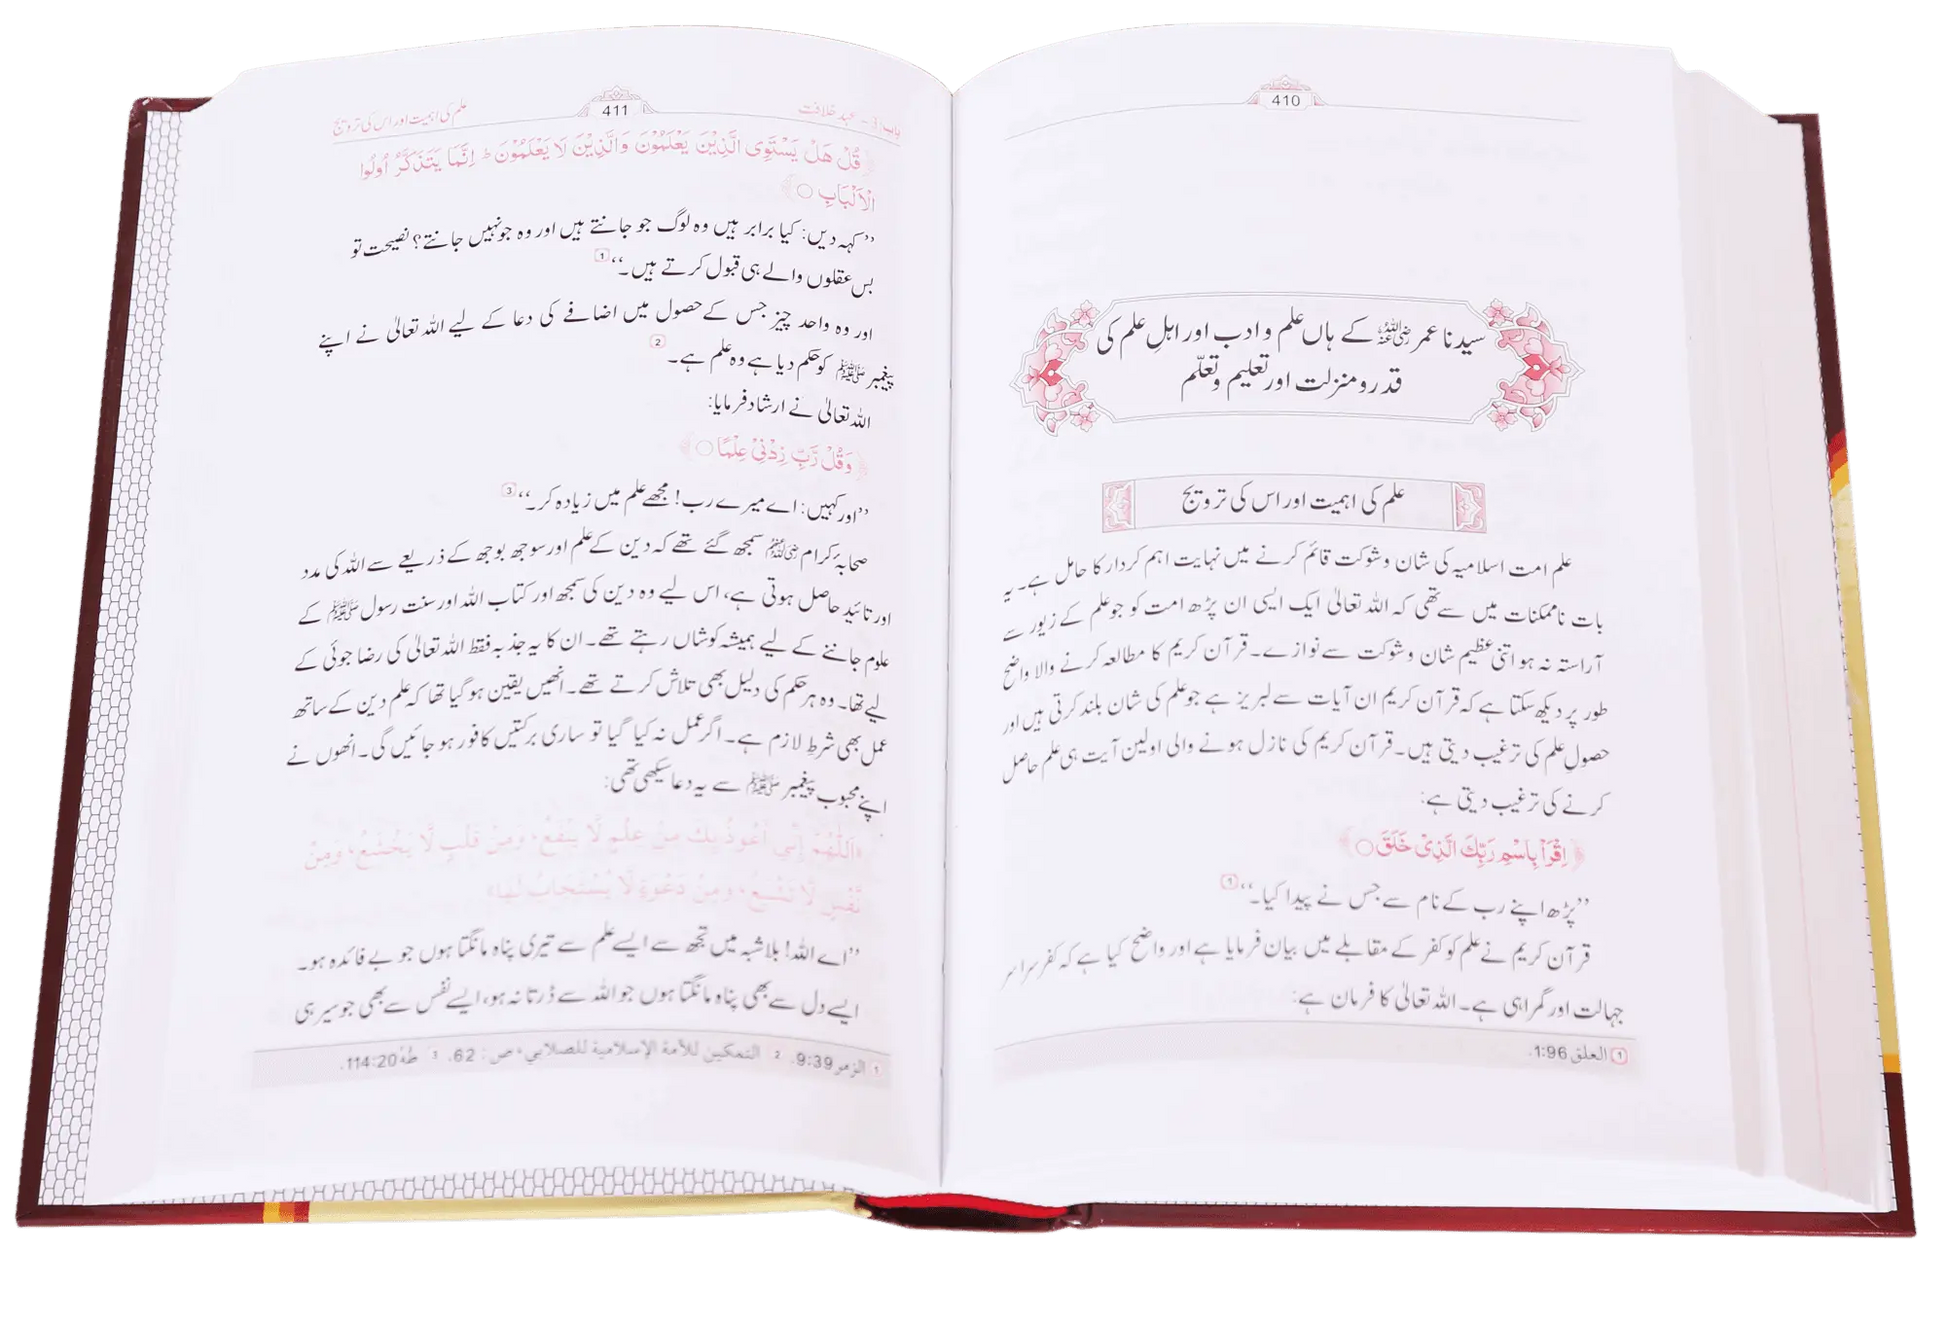 410
سیدنا عمر رضی اللہ عنہ کے ہاں علم و ادب اور اہلِ علم کی
قدر و منزلت اور تعلیم و تعلّم
علم کی اہمیت اور اس کی ترویج
علم امت اسلامیہ کی شان و شوکت قائم کرنے میں نہایت اہم کردار کا حامل ہے۔ یہ
بات ناممکنات میں سے تھی کہ اللہ تعالیٰ ایک ایسی ان پڑھ امت کو جو علم کے زیور سے
آراستہ نہ ہو اتنی عظیم شان و شوکت سے نوازے۔ قرآن کریم کا مطالعہ کرنے والا واضح
طور پر دیکھ سکتا ہے کہ قرآن کریم ان آیات سے لبریز ہے جو علم کی شان بلند کرتی ہیں اور
حصولِ علم کی ترغیب دیتی ہیں۔ قرآن کریم کی نازل ہونے والی اولین آیت ہی علم حاصل
کرنے کی ترغیب دیتی ہے:
﴿اِقْرَاْ بِاسْمِ رَبِّكَ الَّذِیْ خَلَقَ﴾
’’پڑھ اپنے رب کے نام سے جس نے پیدا کیا۔‘‘ 1
قرآن کریم نے علم کو کفر کے مقابلے میں بیان فرمایا ہے اور واضح کیا ہے کہ کفر سراسر
جہالت اور گمراہی ہے۔ اللہ تعالیٰ کا فرمان ہے:
1 العلق 1:96.
باب: 3 - عہد خلافت 411 علم کی اہمیت اور اس کی ترویج
﴿قُلْ هَلْ یَسْتَوِی الَّذِیْنَ یَعْلَمُوْنَ وَالَّذِیْنَ لَا یَعْلَمُوْنَ ؕ اِنَّمَا یَتَذَكَّرُ اُولُوا
الْاَلْبَابِ﴾
’’کہہ دیں: کیا برابر ہیں وہ لوگ جو جانتے ہیں اور وہ جو نہیں جانتے؟ نصیحت تو
بس عقلوں والے ہی قبول کرتے ہیں۔‘‘ 1
اور وہ واحد چیز جس کے حصول میں اضافے کی دعا کے لیے اللہ تعالیٰ نے اپنے
پیغمبر ﷺ کو حکم دیا ہے وہ علم ہے۔ 2
اللہ تعالیٰ نے ارشاد فرمایا:
﴿وَقُلْ رَّبِّ زِدْنِیْ عِلْمًا﴾
’’اور کہیں: اے میرے رب! مجھے علم میں زیادہ کر۔‘‘ 3
صحابۂ کرام رضی اللہ عنہم سمجھ گئے تھے کہ دین کے علم اور سوجھ بوجھ کے ذریعے سے اللہ کی مدد
اور تائید حاصل ہوتی ہے، اس لیے وہ دین کی سمجھ اور کتاب اللہ اور سنت رسول ﷺ کے
علوم جاننے کے لیے ہمیشہ کوشاں رہتے تھے۔ ان کا یہ جذبہ فقط اللہ تعالیٰ کی رضا جوئی کے
لیے تھا۔ وہ ہر حکم کی دلیل بھی تلاش کرتے تھے۔ انھیں یقین ہو گیا تھا کہ علم دین کے ساتھ
عمل بھی شرطِ لازم ہے۔ اگر عمل نہ کیا گیا تو ساری برکتیں کافور ہو جائیں گی۔ انھوں نے
اپنے محبوب پیغمبر ﷺ سے یہ دعا سیکھی تھی:
«اَللّٰهُمَّ إِنِّي أَعُوذُ بِكَ مِنْ عِلْمٍ لَّا يَنْفَعُ، وَمِنْ قَلْبٍ لَّا يَخْشَعُ، وَمِنْ
نَّفْسٍ لَّا تَشْبَعُ، وَمِنْ دَعْوَةٍ لَّا يُسْتَجَابُ لَهَا»
’’اے اللہ! بلاشبہ میں تجھ سے ایسے علم سے تیری پناہ مانگتا ہوں جو بے فائدہ ہو۔
ایسے دل سے بھی پناہ مانگتا ہوں جو اللہ سے ڈرتا نہ ہو، ایسے نفس سے بھی جو سیر ہی
1 الزمر 9:39. 2 التمكين للأمة الإسلامية للصلابي، ص: 62. 3 طهٰ 114:20.